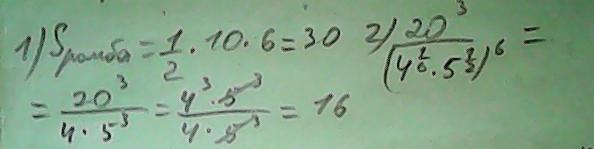 1) Sромба = 1/2 · 10 · 6 = 30 2) 20³/(4^(1/6) · 5^(1/2))^6 =
= 20³/(4 · 5³) = (4³ · 5³)/(4 · 5³) = 16